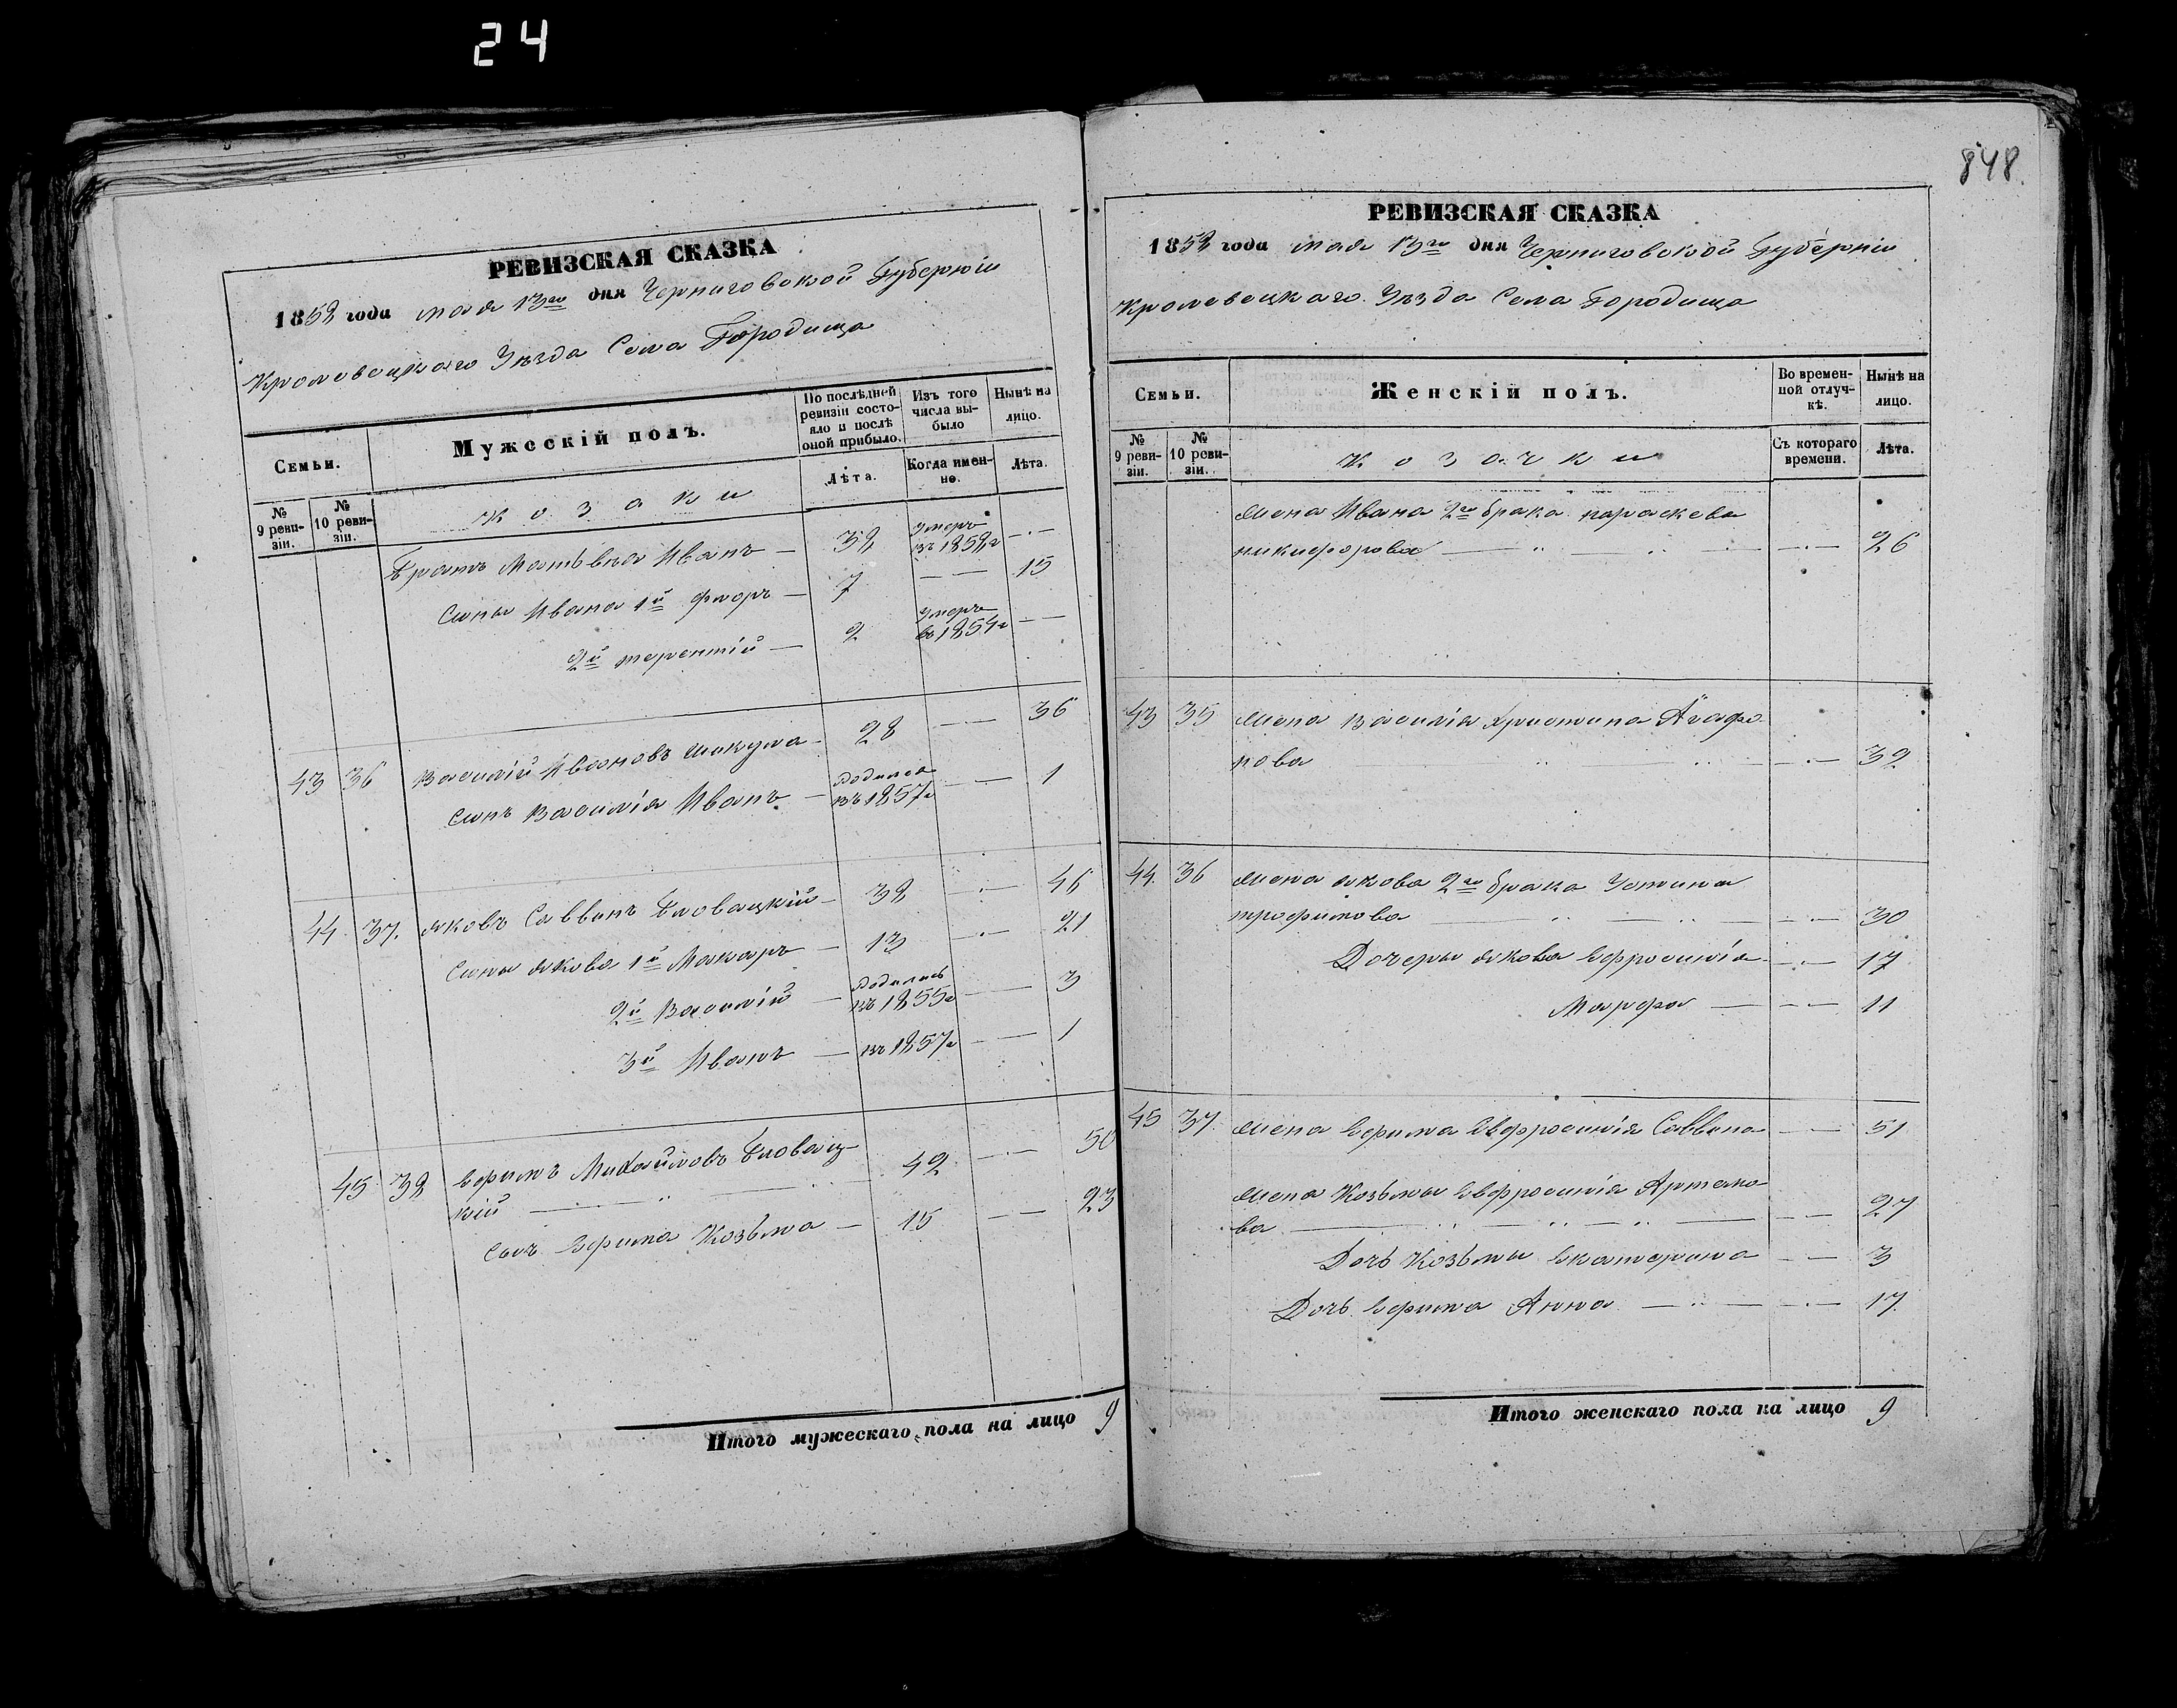 24
848.
РЕВИЗСКАЯ СКАЗКА
1858 года мая 13го дня Черниговской Губерніи
Кролевецкаго Уѣзда Села Городища
Семьи.
Мужескій полъ.
По послѣдней ревизіи состояло и послѣ оной прибыло.
Изъ того числа выбыло
Нынѣ на лицо.
№ 9 ревизіи.
№ 10 ревизіи.
козаки
Лѣта.
Когда именно.
Лѣта.
Братъ Матвѣя Иванъ — 38 умеръ въ 1858г —
Сыны Ивана 1й — 7 — — 15
2й терентій — 2 умеръ въ 1854г — —
43 36 Василій Ивановъ шикула — 28 — — 36
сынъ Василія Иванъ — родился въ 1857г — — 1
44. 37. яковъ Саввинъ — 38 — — 46
Сыны якова 1й Макаръ — 13 — — 21
2й Василій — родились въ 1855г — — 3
3й Иванъ — въ 1857г — — 1
45 38 Ефимъ Михайловъ
кій — " — " 42 — — 50
Сынъ Ефима Козьма — 15 — — 23
Итого мужескаго пола на лицо 9
РЕВИЗСКАЯ СКАЗКА
1858 года мая 13го дня Черниговской Губерніи
Кролевецкаго Уѣзда Села Городища
Семьи.
Женскій полъ.
Во временной отлучкѣ.
Нынѣ на лицо.
№ 9 ревизіи.
№ 10 ревизіи.
козачки
Съ котораго времени.
Лѣта.
жена Ивана 2го брака параскева
никифорова — " — " — — — 26
43 35 жена василія Христина Агафо-
нова — " — — — 32
44. 36 жена якова 2го брака Устина
трофимова — " — " — — — 30
Дочеры якова Ефросинія — — 17
Марфа — — — 11
45 37. жена Ефима Евфросинія Саввина — — 51
жена Козьмы Евфросинія Артемо-
ва — " — " — — — 27
Дочь Козьмы Екатерина — — 3
Дочь Ефима Анна — " — — — 17.
Итого женскаго пола на лицо 9